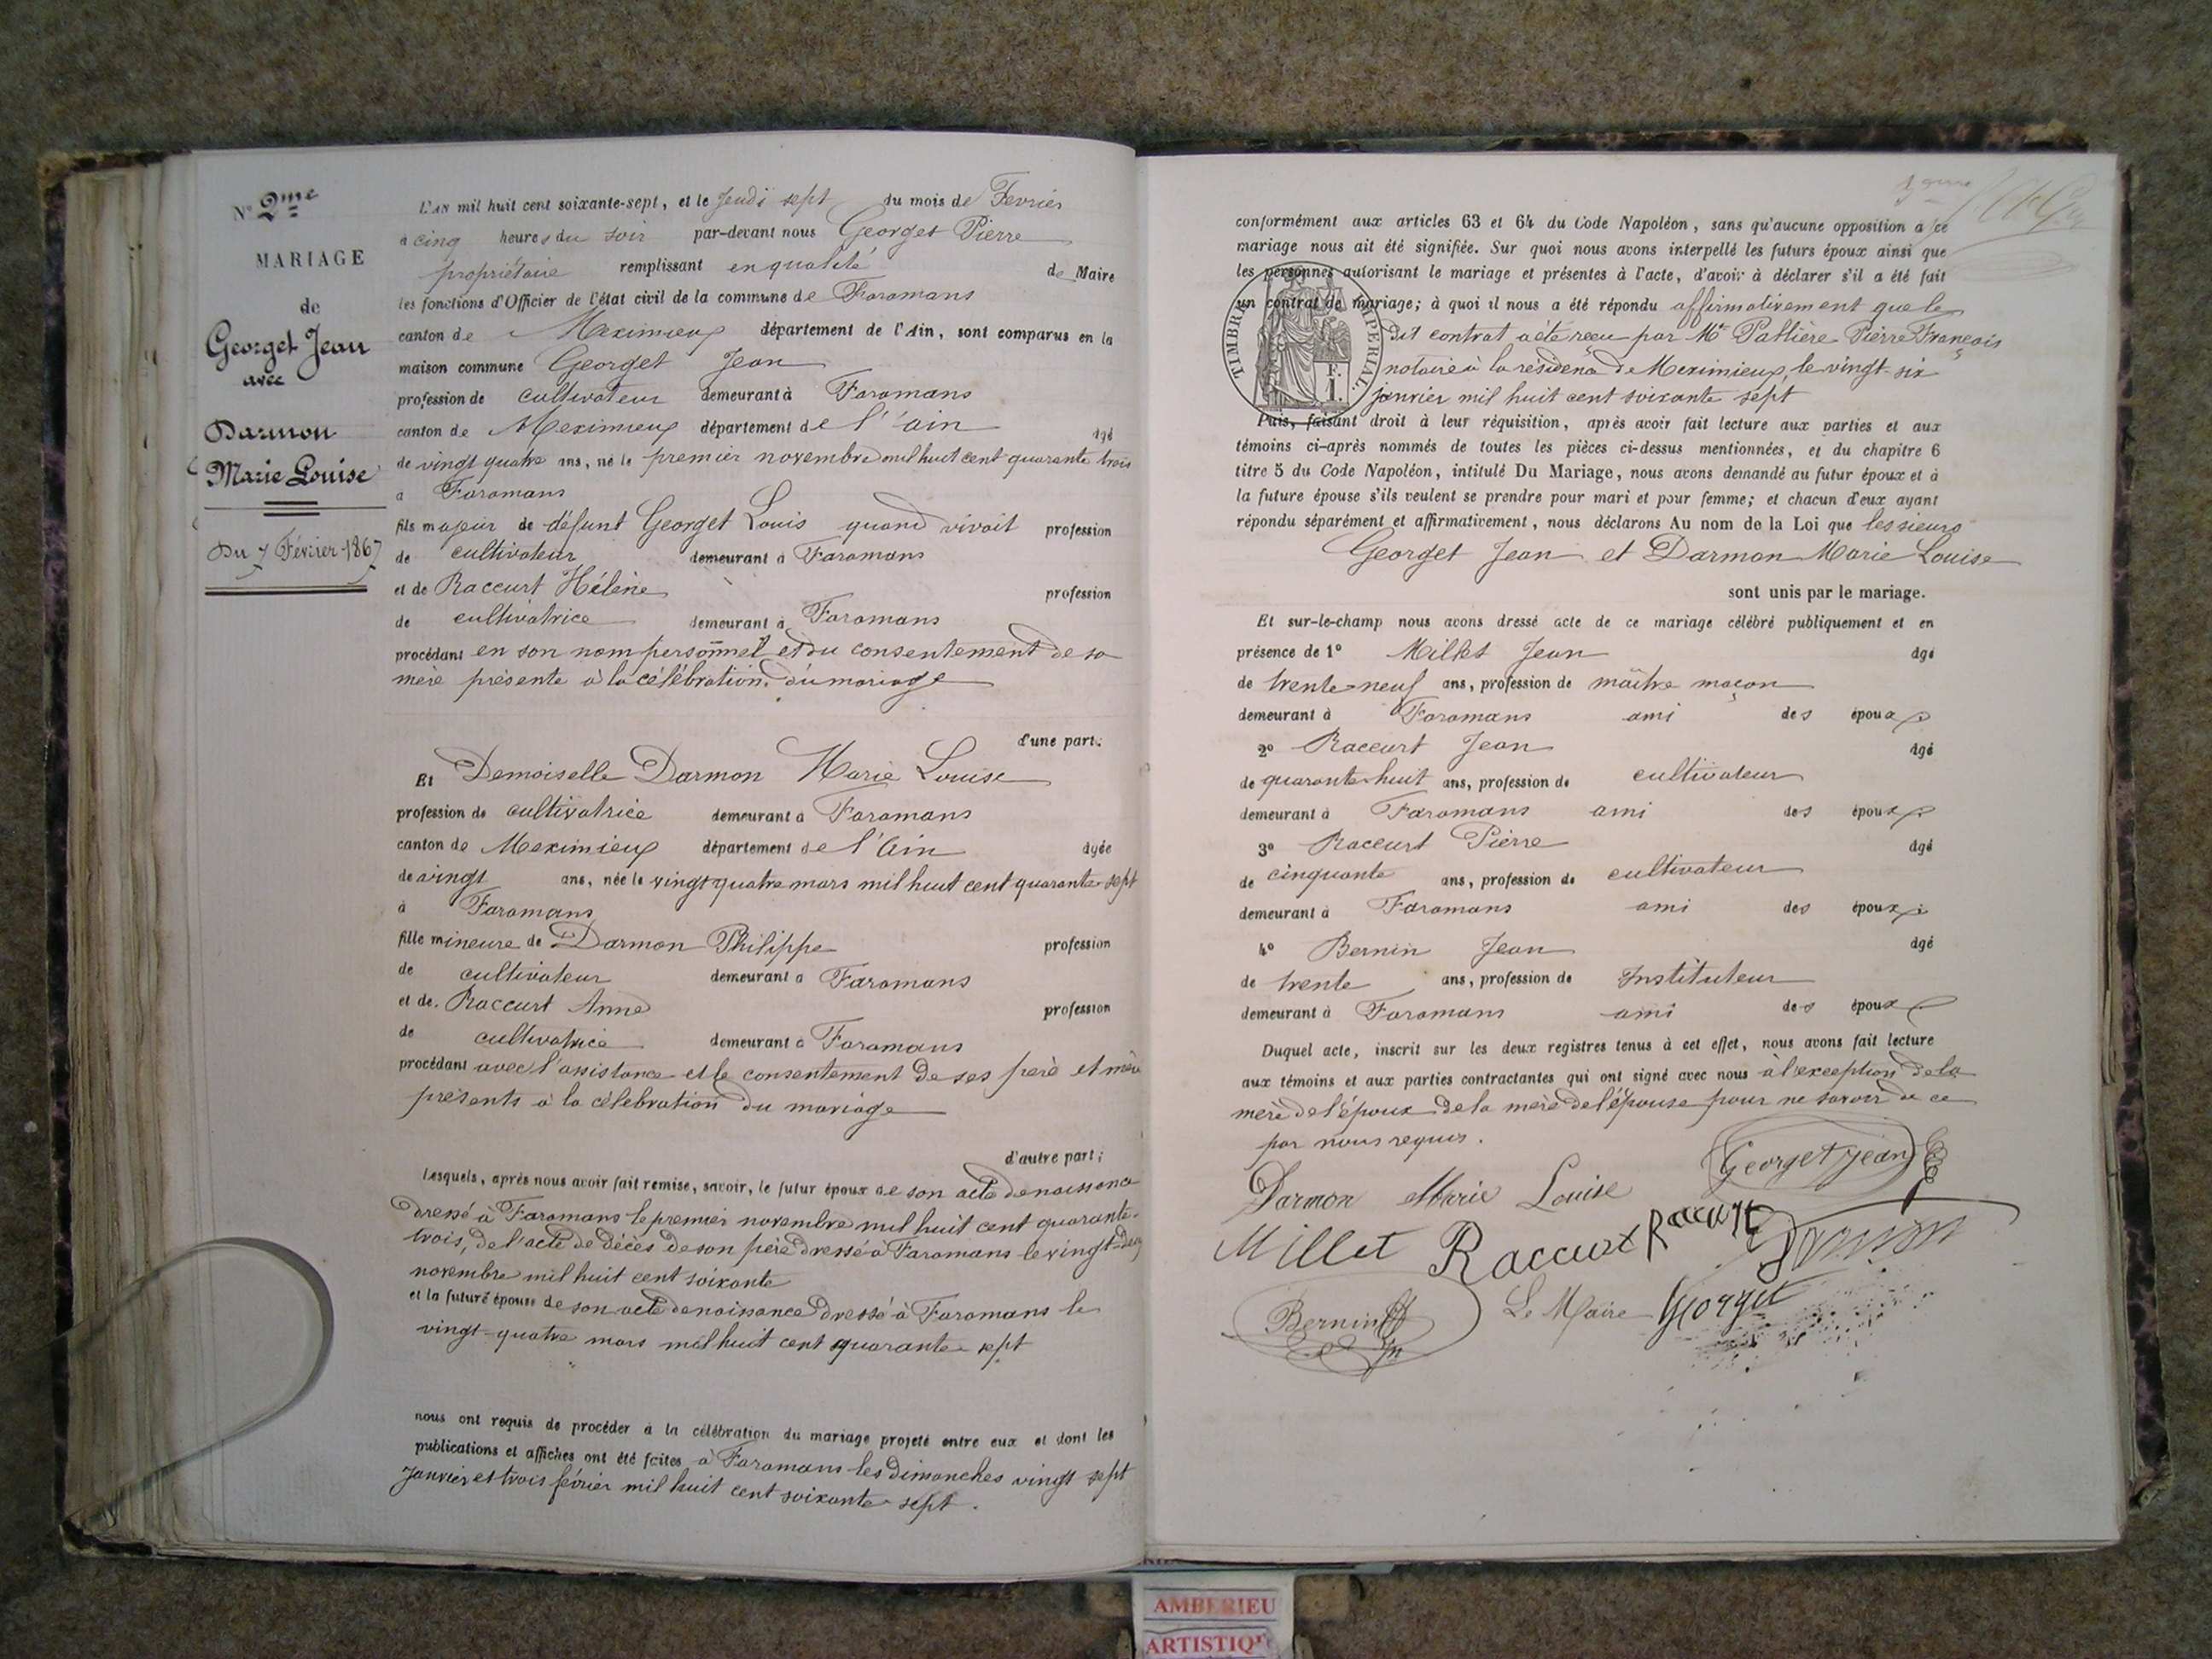 N° 2me
MARIAGE
de
Georget Jean
avec
Darmon
Marie Louise
Du 7 Février 1867
L'AN mil huit cent soixante-sept, et le Jeudi sept du mois de Fevrier
à cinq heures du soir par-devant nous Georget Pierre
propriétaire remplissant en qualité de Maire
les fonctions d'Officier de l'état civil de la commune de Faramans
canton de Meximieux département de l'Ain, sont comparus en la
maison commune Georget Jean
profession de cultivateur demeurant à Faramans
canton de Meximieux département de l'ain âgé
de vingt quatre ans, né le premier novembre mil huit cent quarante trois
à Faramans
fils majeur de défunt Georget Louis quand vivait profession
de cultivateur demeurant à Faramans
et de Raccurt Hélène profession
de cultivatrice demeurant à Faramans
procédant en son nom personnel et du consentement de sa
mère présente à la célébration du mariage
d'une part;
Et Demoiselle Darmon Marie Louise
profession de cultivatrice demeurant à Faramans
canton de Meximieux département de l'Ain âgée
de vingt ans, née le vingt quatre mars mil huit cent quarante-sept
à Faramans
fille mineure de Darmon Philippe profession
de cultivateur demeurant à Faramans
et de Raccurt Anne profession
de cultivatrice demeurant à Faramans
procédant avec l'assistance et le consentement de ses père et mère
présents à la célébration du mariage
d'autre part;
Lesquels, après nous avoir fait remise, savoir, le futur époux de son acte de naissance
dressé à Faramans le premier novembre mil huit cent quarante-
trois, de l'acte de décès de son père dressé à Faramans le vingt-deux
novembre mil huit cent soixante
et la future épouse de son acte de naissance dressé à Faramans le
vingt-quatre mars mil huit cent quarante-sept
nous ont requis de procéder à la célébration du mariage projeté entre eux et dont les
publications et affiches ont été faites à Faramans les dimanches vingt sept
Janvier et trois février mil huit cent soixante-sept.
conformément aux articles 63 et 64 du Code Napoléon, sans qu'aucune opposition à ce
mariage nous ait été signifiée. Sur quoi nous avons interpellé les futurs époux ainsi que
les personnes autorisant le mariage et présentes à l'acte, d'avoir à déclarer s'il a été fait
un contrat de mariage; à quoi il nous a été répondu affirmativement que le
dit contrat a été recu par Me Pallière Pierre François
notaire à la résidence de Meximieux, le vingt-six
janvier mil huit cent soixante sept
TIMBRE IMPERIAL.
F.
1.
Puis, faisant droit à leur réquisition, après avoir fait lecture aux parties et aux
témoins ci-après nommés de toutes les pièces ci-dessus mentionnées, et du chapitre 6
titre 5 du Code Napoléon, intitulé Du Mariage, nous avons demandé au futur époux et à
la future épouse s'ils veulent se prendre pour mari et pour femme; et chacun d'eux ayant
répondu séparément et affirmativement, nous déclarons Au nom de la Loi que les sieurs
Georget Jean et Darmon Marie Louise
sont unis par le mariage.
Et sur-le-champ nous avons dressé acte de ce mariage célébré publiquement et en
présence de 1° Millet Jean âgé
de trente-neuf ans, profession de maître maçon
demeurant à Faramans ami des époux
2° Raccurt Jean âgé
de quarante-huit ans, profession de cultivateur
demeurant à Faramans ami des époux
3° Raccurt Pierre âgé
de cinquante ans, profession de cultivateur
demeurant à Faramans ami des époux
4° Bernin Jean âgé
de trente ans, profession de Instituteur
demeurant à Faramans ami des époux
Duquel acte, inscrit sur les deux registres tenus à cet effet, nous avons fait lecture
aux témoins et aux parties contractantes qui ont signé avec nous à l'exception de la
mère de l'époux de la mère de l'épouse pour ne savoir de ce
par nous requis.
Georget jean
Darmon Marie Louise
Millet Raccurt Raccurt Darmon
Bernin Le Maire Georget
AMBERIEU
ARTISTIQUE